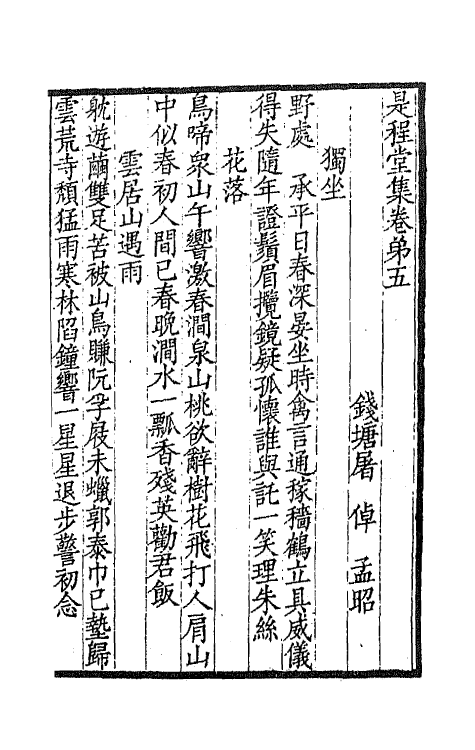 是程堂集卷弟五
錢塘屠 倬 孟昭
獨坐
野處 承平日春深晏坐時禽言通稼穡鶴立具威儀
得失隨年證鬚眉攬鏡疑孤懷誰與託一笑理朱絲
花落
鳥啼衆山午響激春澗泉山桃欲辭樹花飛打人肩山
中似春初人間已春晚澗水一瓢香殘英勸君飯
雲居山遇雨
躭遊繭雙足苦被山鳥賺阮孚屐未蠟郭泰巾已墊歸
雲荒寺頹猛雨寒林陷鐘響一星星退步警初念